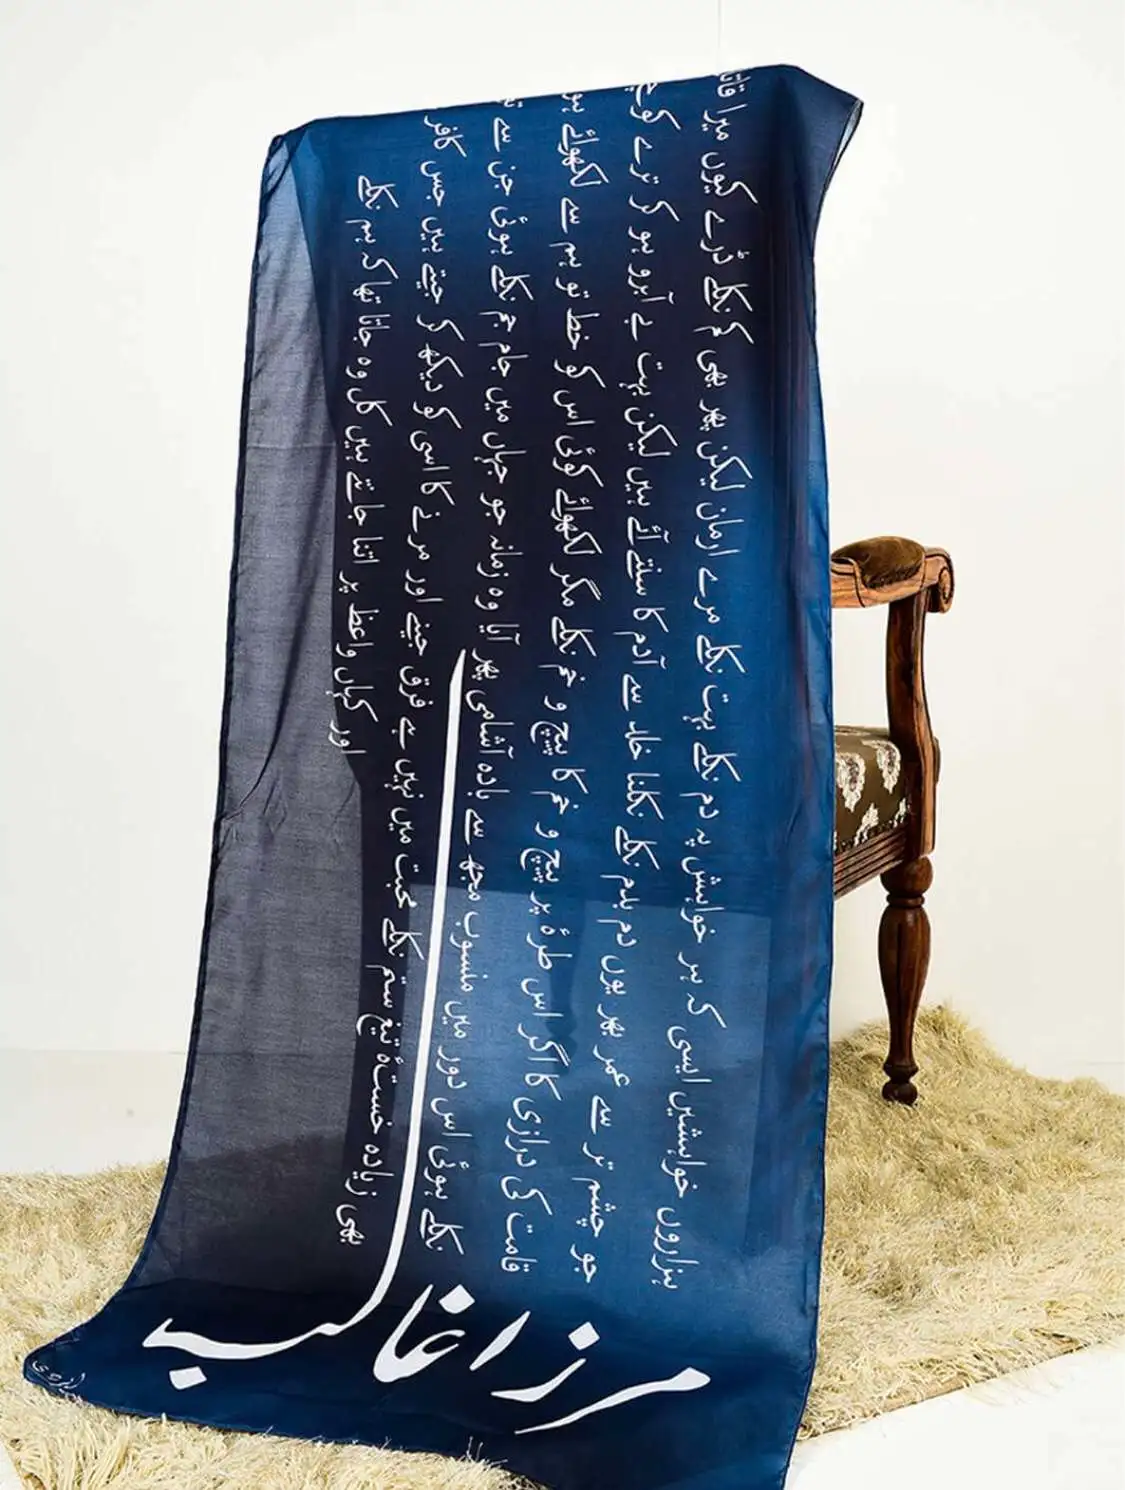 ہزاروں خواہشیں ایسی کہ ہر خواہش پہ دم نکلے بہت نکلے مرے ارمان لیکن پھر بھی کم نکلے ڈرے کیوں میرا
جو چشم تر سے عمر بھر یوں دم بدم نکلے نکلنا خلد سے آدم کا سنتے آئے ہیں لیکن بہت بے آبرو ہو کر ترے
قامت کی درازی کا اگر اس طرۂ پر پیچ و خم کا پیچ و خم نکلے مگر لکھوائے کوئی اس کو خط تو ہم سے لکھوائے
نکلے ہوئی اس دور میں منسوب مجھ سے بادہ آشامی پھر آیا وہ زمانہ جو جہاں میں جام جم نکلے ہوئی جن سے
بھی زیادہ خستۂ تیغ ستم نکلے محبت میں نہیں ہے فرق جینے اور مرنے کا اسی کو دیکھ کر جیتے ہیں جس کافر
اور کہاں واعظ پر اتنا جانتے ہیں کل وہ جاتا تھا کہ ہم نکلے
مرزا غالب